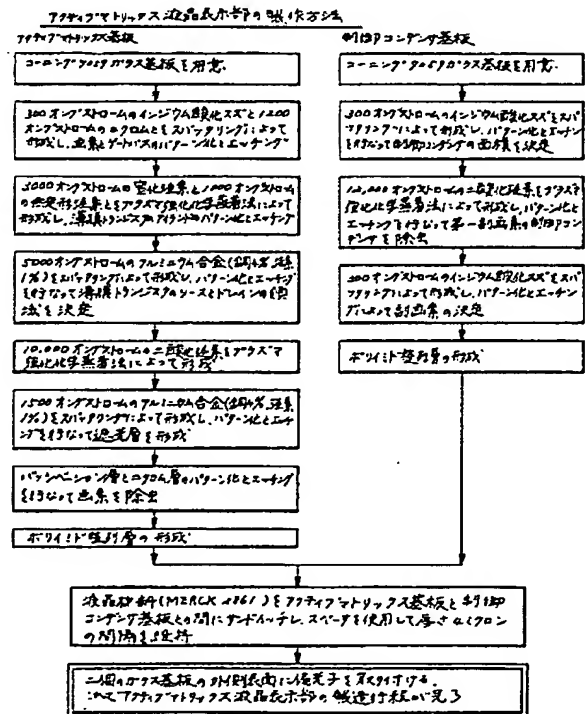 アクティブマトリックス液晶表示部の製作方法
アクティブマトリックス基板
コーニング7059ガラス基板を用意
300オングストロームのインジウム酸化スズと1200
オングストロームのニクロムとをスパッタリングによって
形成し、画素とゲートバスのパターン化とエッチング
3000オングストロームの窒化硅素と1000オングストローム
の無定形硅素とをプラズマ強化化学蒸着法によって
形成し、薄膜トランジスタアイランドのパターン化とエッチング
5000オングストロームのアルミニウム合金(銅4%、硅素
1%)をスパッタリングによって形成し、パターン化とエッチング
を行なって薄膜トランジスタのソースとドレインの
を決定
10,000オングストロームの二酸化硅素をプラズマ
強化化学蒸着法によって形成
1500オングストロームのアルミニウム合金(銅4%、硅素
1%)をスパッタリングによって形成し、パターン化とエッチ
ングを行なって遮光層を形成
パッシベーション層とニクロム層のパターン化とエッチング
を行なって画素を除去
ポリイミド整列層の形成
制御コンデンサ基板
コーニング7059ガラス基板を用意
300オングストロームのインジウム酸化スズをスパ
ッタリングによって形成し、パターン化とエッチング
を行なって制御コンデンサの面積を決定
オングストロームの二酸化硅素をプラズマ
強化化学蒸着法によって形成し、パターン化と
エッチングを行なって第一副画素の制御コン
デンサを除去
300オングストロームのインジウム酸化スズをスパ
ッタリングによって形成し、パターン化とエッチン
グによって副画素の決定
ポリイミド整列層の形成
液晶材料(MERCK)をアクティブマトリックス基板と制御
コンデンサ基板との間にサンドイッチし、スペーサを使用して厚さミクロン
の間隔を維持
二個のガラス基板の外側表面に偏光子を取り付ける。
これでアクティブマトリックス液晶表示部の製造行程が完了